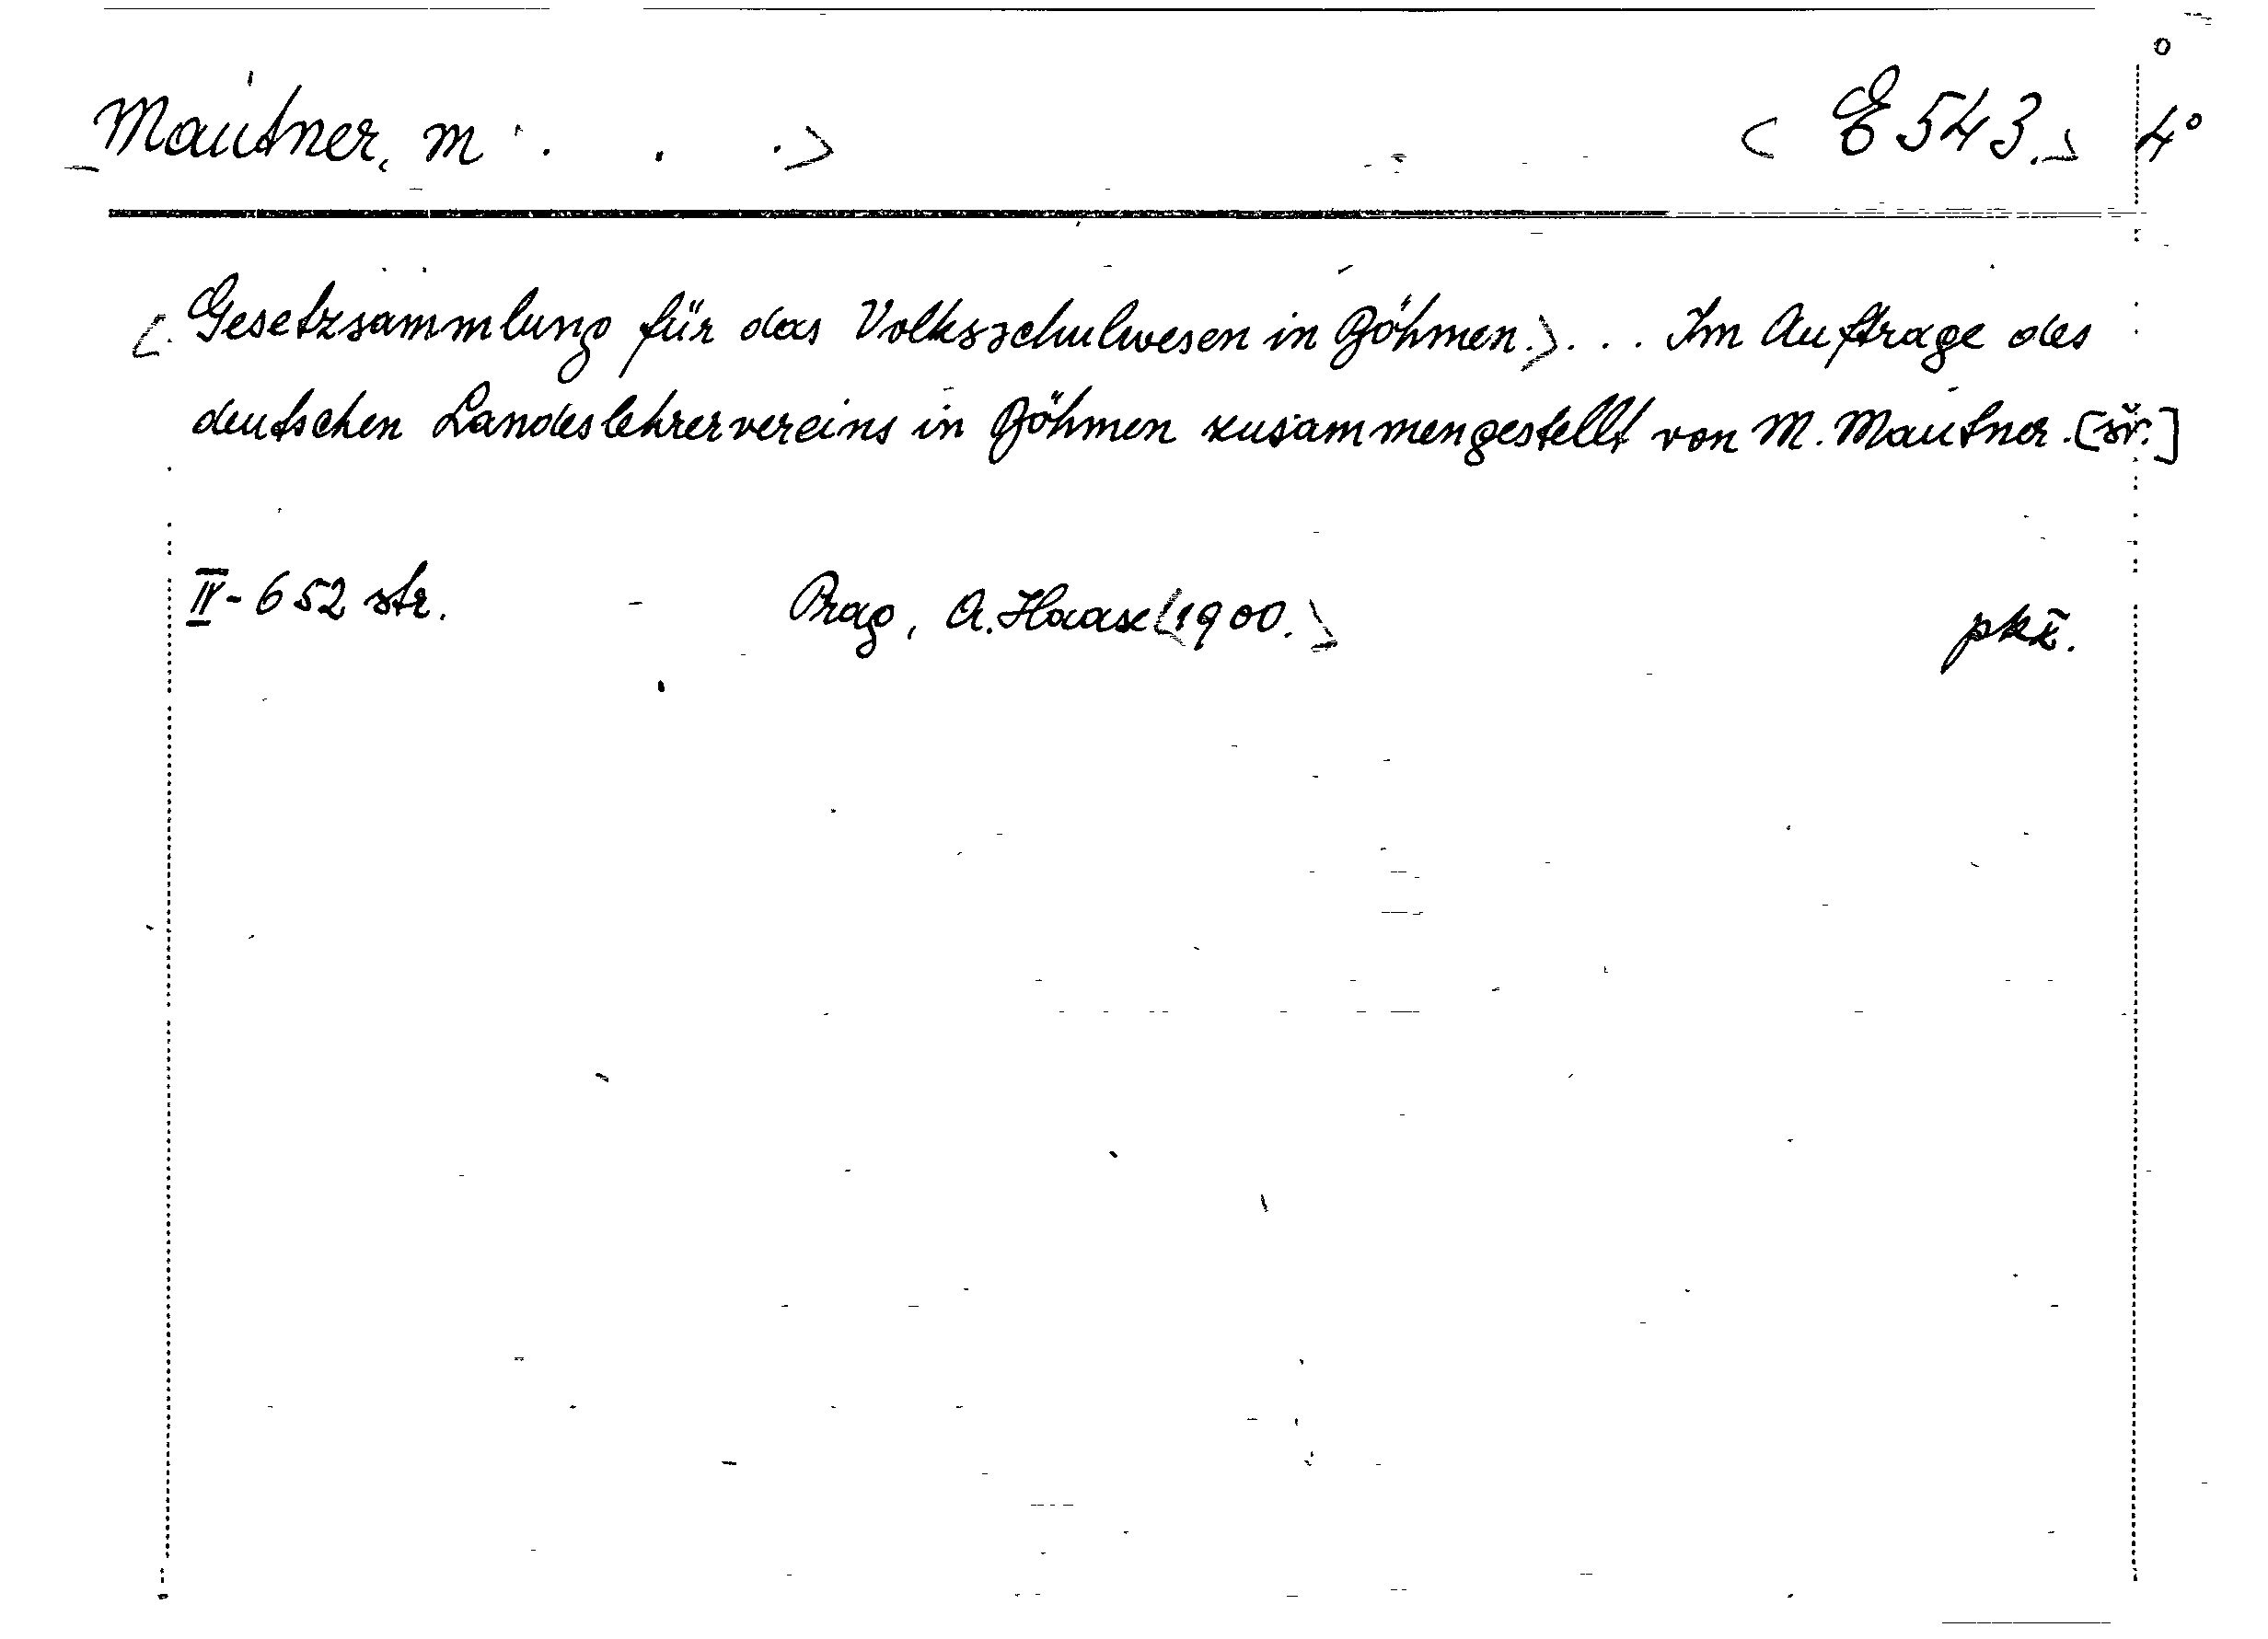 Mautner, M . . . > < E 543. > 4°
<. Gesetzsammlung für das Volksschulwesen in Böhmen.> . . . Im Auftrage des
deutschen Landeslehrervereins in Böhmen zusammengestellt von M. Mautner. [šř.]
IV - 652 str. Prag, A. Haase <1900.> pkž.